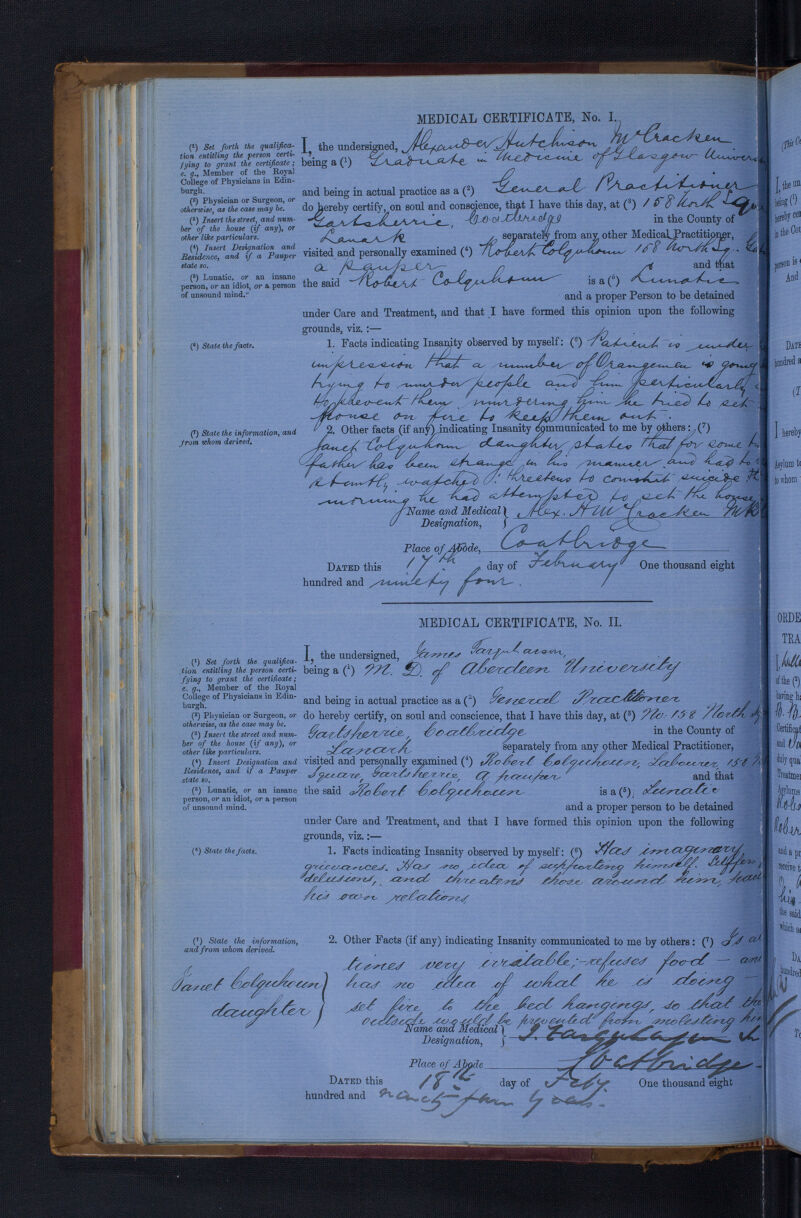 MEDICAL CERTIFICATE, No. I.
(1) Set forth the qualifica-
tion entitling the person certi-
fying to grant the certificate;
e. g., Member of the Royal
College of Physicians in Edin-
burgh.
(2) Physician or Surgeon, or
otherwise, as the case may be.
(3) Insert the street, and num-
ber of the house (if any), or
other like particulars.
(4) Insert Designation and
Residence, and if a Pauper
state so.
(5) Lunatic, or an insane
person, or an idiot, or a person
of unsound mind."
I, the undersigned, Alexander Hutchison McCracken
being a (1) Graduate in Medicine of Glasgow Univers
and being in actual practice as a (2) General Practitioner
do hereby certify, on soul and conscience, that I have this day, at (3) 158 North Squ
Gartsherrie, Coatbridge in the County of
Lanark separately from any other Medical Practitioner,
visited and personally examined (4) Robert Colquhoun 158 North Sq.
a pauper and that
the said Robert Colquhoun is a (5) Lunatic
and a proper Person to be detained
under Care and Treatment, and that I have formed this opinion upon the following
grounds, viz. :—
(6) State the facts.
1. Facts indicating Insanity observed by myself: (6) Patient is under
impression that a number of Orangemen is going
trying to murder people and him particularly
to prevent them murdering him he tried to set
house on fire to keep them out.
(7) State the information, and
from whom derived.
2. Other facts (if any) indicating Insanity communicated to me by others: (7)
Janet Colquhoun daughter states that for some
father has been strange in his manner and had to
watched: threatens to commit suicide
morning he had attempted to set the house
Name and Medical Designation, Alex. H McCracken MB
Place of Abode, Coatbridge
DATED this 17th day of February One thousand eight
hundred and ninety four.
MEDICAL CERTIFICATE, No. II.
(1) Set forth the qualifica-
tion entitling the person certi-
fying to grant the certificate;
e. g., Member of the Royal
College of Physicians in Edin-
burgh.
(2) Physician or Surgeon, or
otherwise, as the case may be.
(3) Insert the street and num-
ber of the house (if any), or
other like particulars.
(4) Insert Designation and
Residence, and if a Pauper
state so.
(5) Lunatic, or an insane
person, or an idiot, or a person
of unsound mind.
I, the undersigned, James Farquharson,
being a (1) M. D. of Aberdeen University
and being in actual practice as a (2) General Practitioner
do hereby certify, on soul and conscience, that I have this day, at (3) No. 158 North
Gartsherrie, Coatbridge in the County of
Lanark separately from any other Medical Practitioner,
visited and personally examined (4) Robert Colquhoun, Labourer, 158
Square, Gartsherrie, a pauper and that
the said Robert Colquhoun is a (5) Lunatic
and a proper person to be detained
under Care and Treatment, and that I have formed this opinion upon the following
grounds, viz. :—
(6) State the facts.
1. Facts indicating Insanity observed by myself: (6) Has imaginary
grievances. Has no idea of supporting himself.
delusions, and threatens those around him,
his own relations
(7) State the information,
and from whom derived.
2. Other Facts (if any) indicating Insanity communicated to me by others: (7) Is at
times very irratable;- refuses food - and
Janet Colquhoun
daughter
has no idea of what he is doing -
set fire to the bed hangings, so that the
outside would be prevented from molesting him
Name and Medical Designation, J. Farquharson
Place of Abode Coatbridge.
DATED this 18th day of Feby. One thousand eight
hundred and ninety four years.